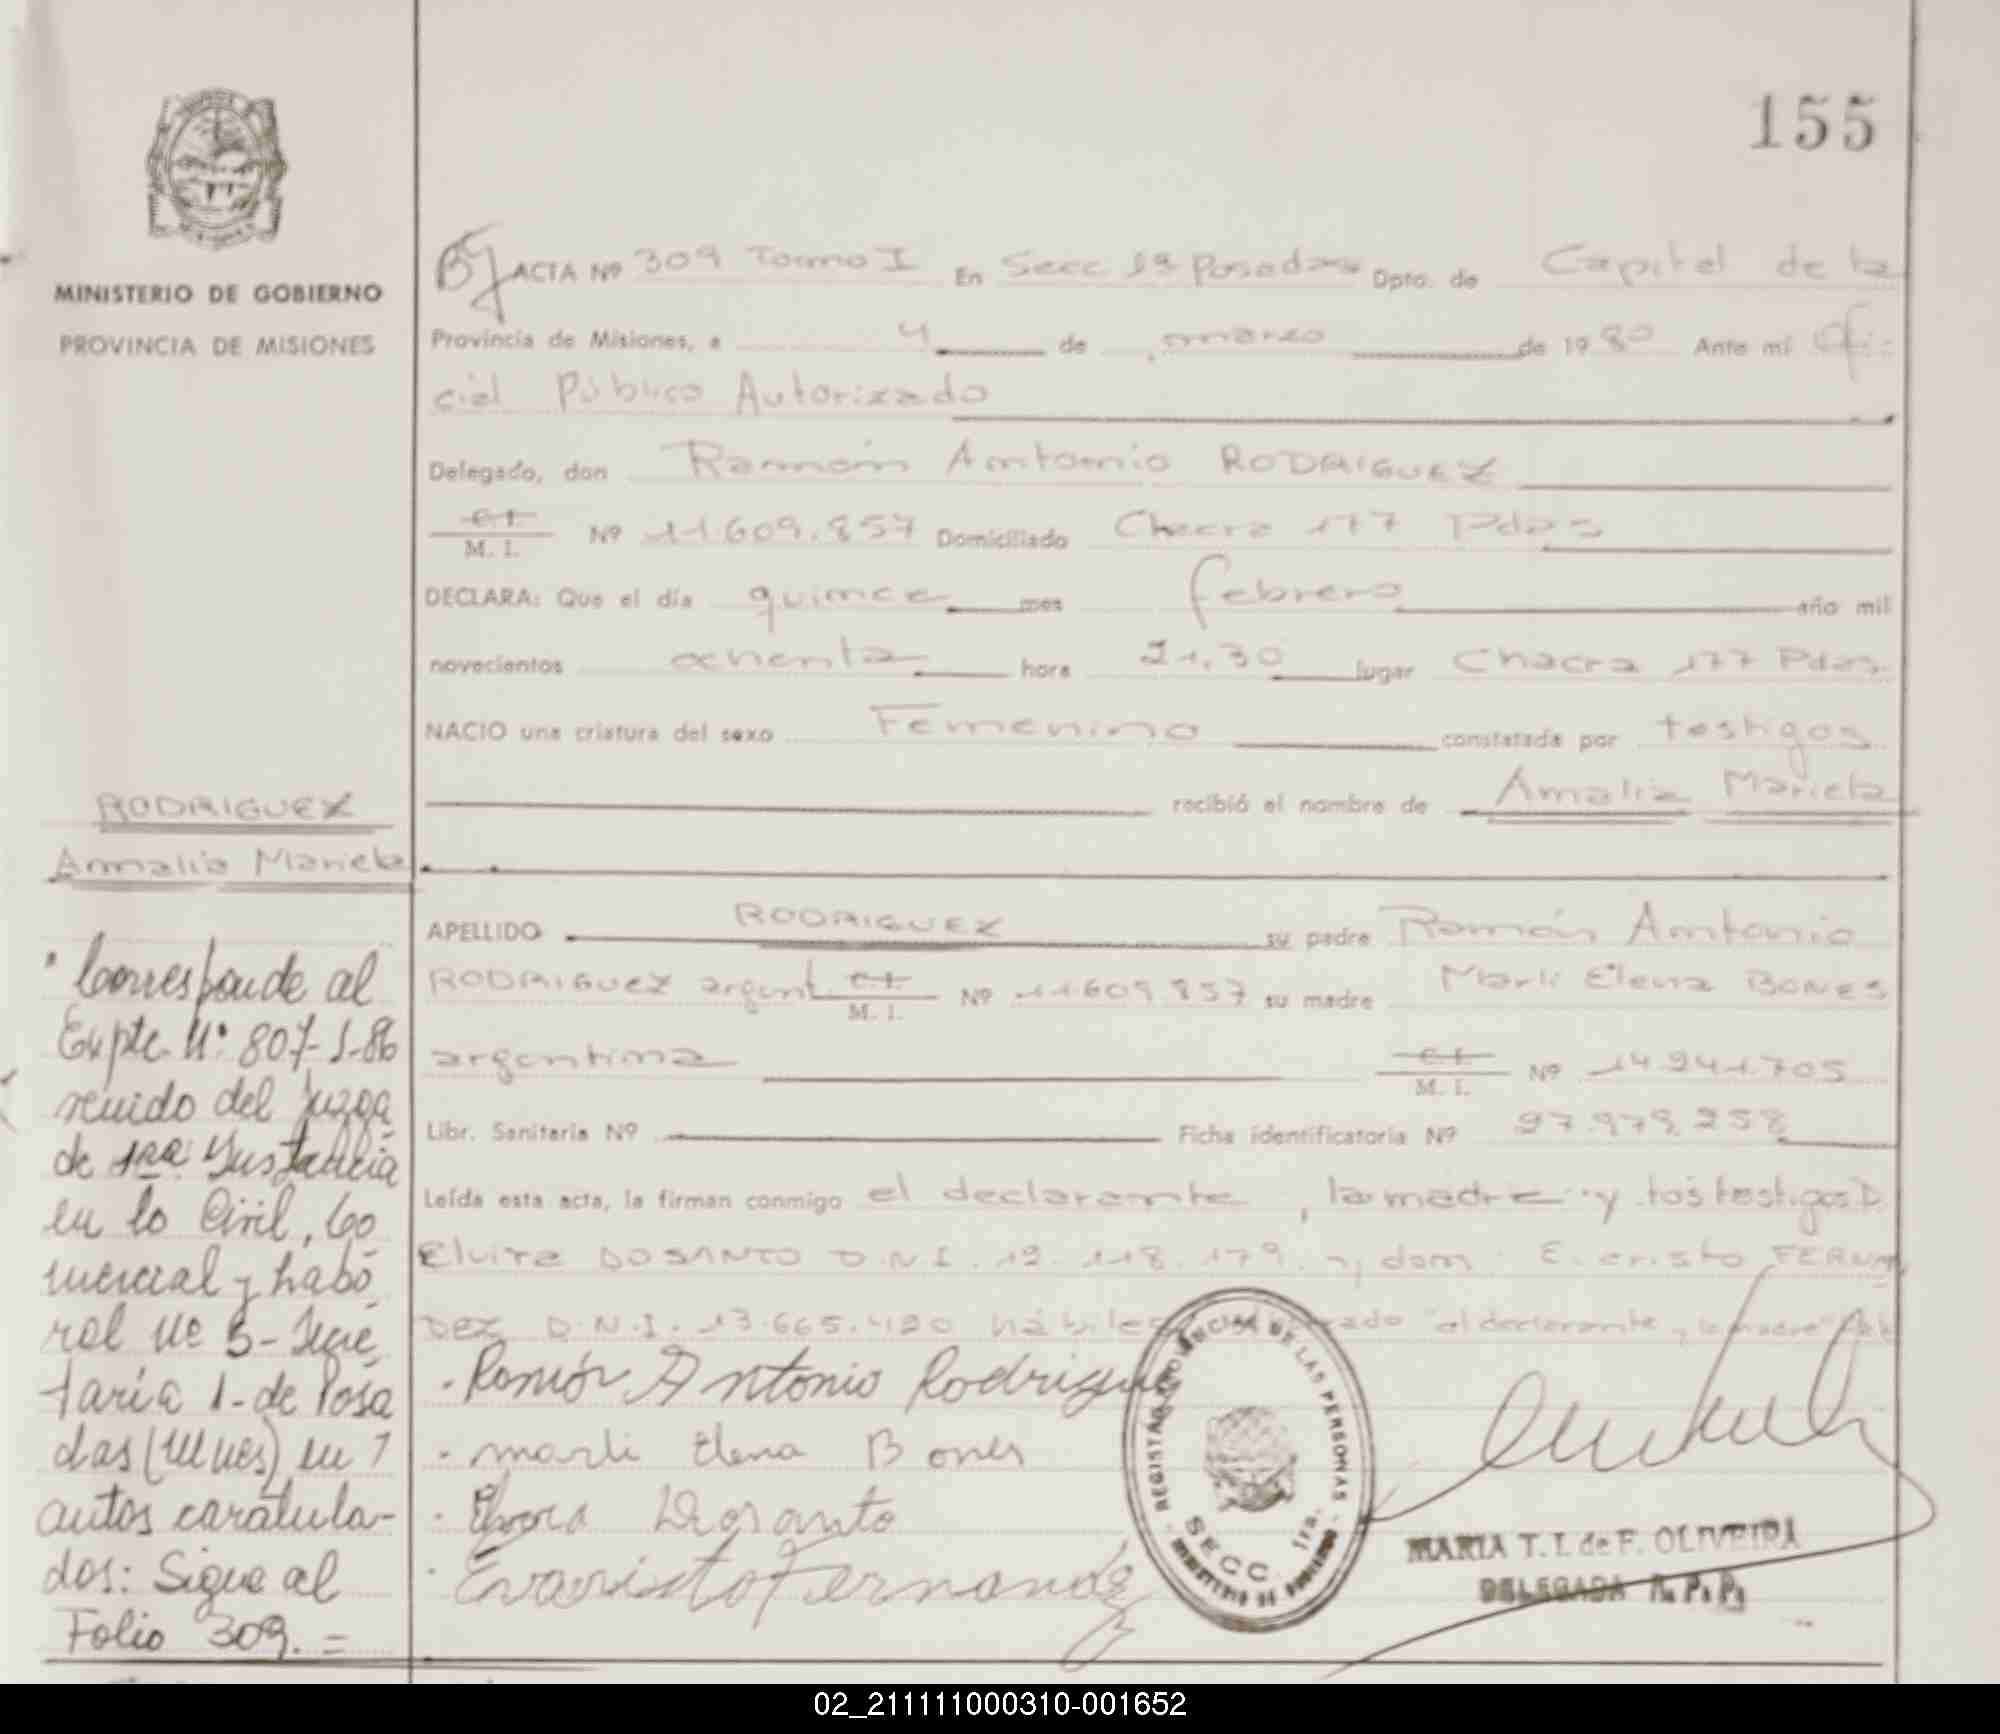 155
MINISTERIO DE GOBIERNO
PROVINCIA DE MISIONES
ACTA Nº 309 Tomo I En Secc 1ª Posadas Dpto. de Capital de la
Provincia de Misiones, a 4 de marzo de 1980 Ante mí Ofi-
cial Público Autorizado
Delegado, don Ramón Antonio RODRIGUEZ
C.I. M. I. Nº 11.609.857 Domiciliado Chacra 177 Pdas
DECLARA: Que el día quince mes febrero año mil
novecientos ochenta hora 21,30 lugar Chacra 177 Pdas.
NACIO una criatura del sexo Femenino constatada por testigos
recibió el nombre de Amalia Mariela
RODRIGUEZ
Amalia Mariela
APELLIDO RODRIGUEZ su padre Ramón Antonio
RODRIGUEZ argent. C.I. M. I. Nº 11609857 su madre Marli Elena BONES
argentina C.I. M. I. Nº 14.941.705
Libr. Sanitaria Nº Ficha identificatoria Nº 27.979.258
Leída esta acta, la firman conmigo el declarante, la madre y los testigos D.
Elvira DOSANTO D.N.I. 12.118.179. y dom E. cristo FERNAN
DEZ D.N.I. 13.665.420 hábiles "el declarante y la madre"
Ramón Antonio Rodriguez
marli Elena Bones
Dosanto
Evaristo Fernandez
REGISTRO PROVINCIAL DE LAS PERSONAS
SECC. 1ra.
MINISTERIO DE GOBIERNO
MARIA T. I. de F. OLIVEIRA
DELEGADA R. P. P.
Corresponde al
Expte. Nº 807-J-86
venido del Juzga
de 1ra. Instancia
en lo Civil, Co
mercial y Labo
ral Nº 3- Secre
taría 1- de Posa
das (Mnes) en
autos caratula-
dos: Sigue al
Folio 309. =
02_211111000310-001652